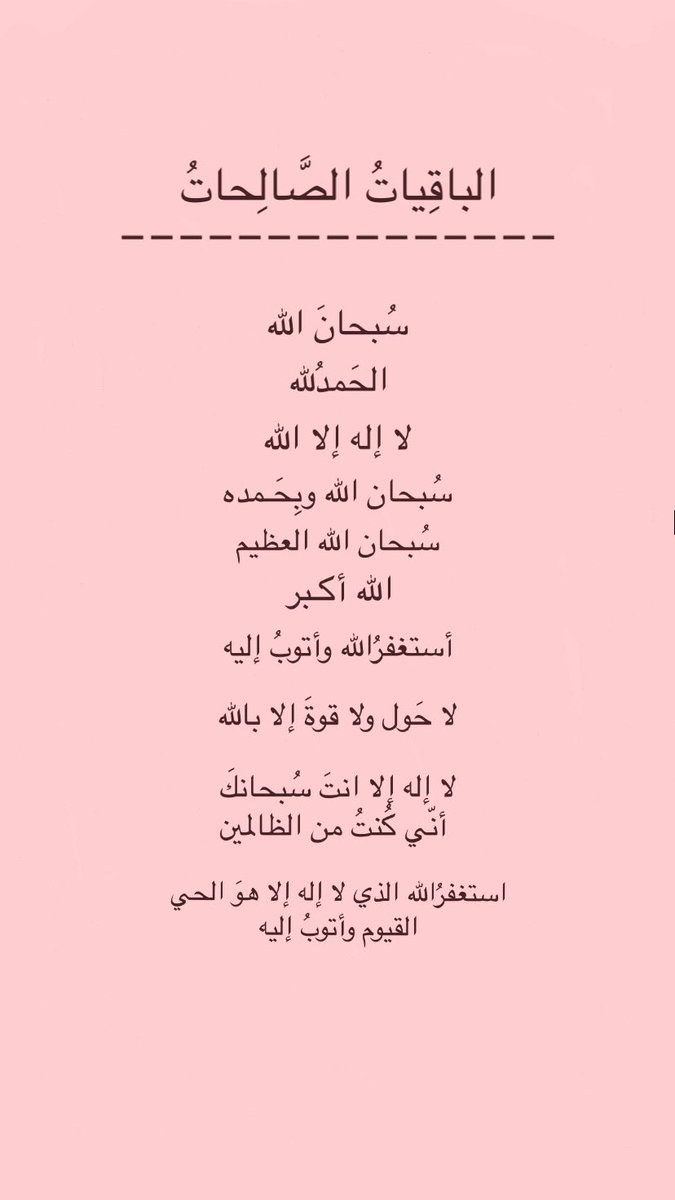 الباقِياتُ الصَّالِحاتُ
---------------
سُبحانَ الله
الحَمدُلله
لا إله إلا الله
سُبحان الله وبِحَـمده
سُبحان الله العظيم
الله أكـبر
أستغفرُالله وأتوبُ إليه
لا حَول ولا قوةَ إلا بالله
لا إله إلا انتَ سُبحانكَ
أنّـي كُنتُ من الظالمين
استغفرُالله الذي لا إله إلا هـوَ الحـي
القيوم وأتوبُ إليه